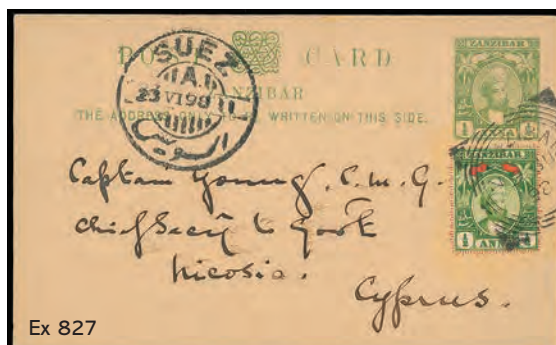 POST CARD
ZANZIBAR
THE ADDRESS ONLY TO BE WRITTEN ON THIS SIDE.
SUEZ
A.I
23 VI 98
السويس
ZANZIBAR
½ ANNA ½
ZANZIBAR
½ ANNA ½
Captain Young, C.M.G.
Chief Secy to Govt
Nicosia.
Cyprus.
Ex 827